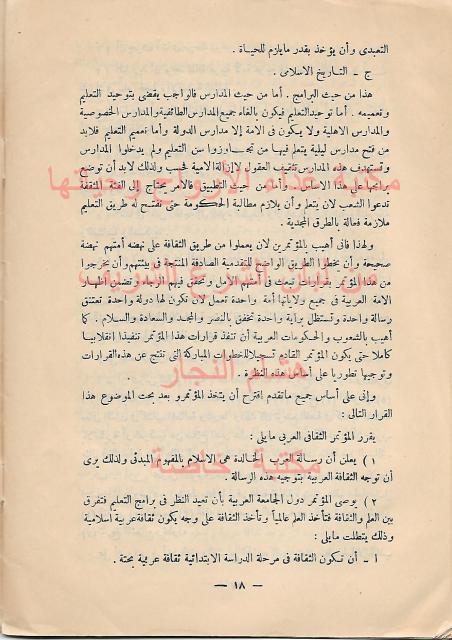 التعبدى وأن يؤخذ بقدر مايلزم للحياة .
ج ـ التاريخ الاسلامى .
هذا من حيث البرامج . أما من حيث المدارس فالواجب يقضى بتوحيد التعليم
وتعميمه . أما توحيد التعليم فيكون بالغاء جميع المدارس الطائفية والمدارس الخصوصية
والمدارس الاهلية ولا يكون فى الامة إلا مدارس الدولة وأما تعميم التعليم فلابد
من فتح مدارس ليلية يتعلم فيها من تجاوزوا سن التعليم ولم يدخلوا المدارس
وتستهدف هذه المدارس تثقيف العقول لا إزالة الامية فحسب ولذلك لابد أن توضع
برامجها على هذا الاساس . وأما من حيث التطبيق فالأمر يحتاج إلى الفئة المثقفة
تدعوا الشعب لان يتعلم وأن يلازم مطالبة الحكومة حتى تفتح له طريق التعليم
ملازمة فعالة بالطرق المجدية .
ولهذا فانى أهيب بالمؤتمرين لان يعملوا من طريق الثقافة على نهضه أمتهم نهضة
صحيحة وأن يخطوا الطريق الواضح للتقدمية الصادقة المنتجة فى بيئتهم وأن يخرجوا
من هذا المؤتمر بقرارات تبعث فى أمتهم الأمل وتحقق فيهم الرجاء وتضمن
الامة العربية فى جميع ولاياتها أمة واحدة تعمل لان تكون لها دولة واحدة تعتنق
رسالة واحدة وتستظل براية واحدة تخفق بالنصر والمجد والسعادة والسلام . كما
أهيب بالشعوب والحكومات العربية أن تنفذ قرارات هذا المؤتمر تنفيذا انقلابيا
كاملا حتى يكون المؤتمر القادم تسجيلا للخطوات المباركة التى تنتج عن هذه القرارات
وتوجيها تطوريا على أساس هذه النظرة .
وإنى على أساس جميع ماتقدم إقترح أن يتخذ المؤتمرو بعد بحث الموضوع هذا
القرار التالى :
يقرر المؤتمر الثقافى العربى مايلى :
١ ) يعلن أن رسالة العرب الخالدة هى الاسلام بالمفهوم المبدئى ولذلك يرى
أن توجه الثقافة العربية بتوجيه هذه الرسالة .
٢ ) يوصى المؤتمر دول الجامعة العربية بأن تعيد النظر فى برامج التعليم فتفرق
بين العلم والثقافة فتأخذ العلم عالمياً وتأخذ الثقافة على وجه يكون ثقافة عربية اسلامية
وذلك يتطلب مايلى :
أ ـ أن تكون الثقافة فى مرحلة الدراسة الابتدائية ثقافة عربية بحتة .
— ١٨ —
مكتبة خاصة
هشام النجار